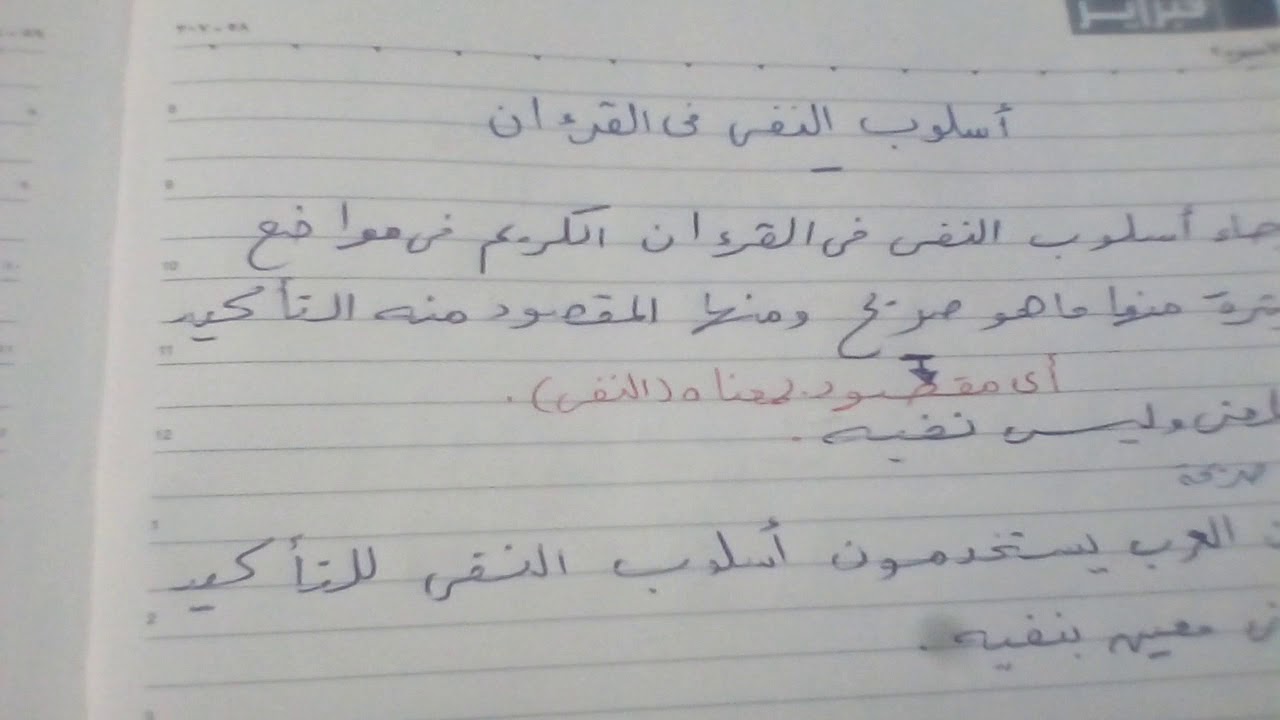 فبراير
أسلوب النفى فى القرءان
جاء أسلوب النفى فى القرءان الكريم فى مواضع
منها ما هو صريح ومنها المقصود منه التأكيد
أى مقصود بمعناه (النفى).
وليس نفيه.
العرب يستخدمون أسلوب النفى للتأكيد
معين بنفيه.
8
9
10
11
12
1
2